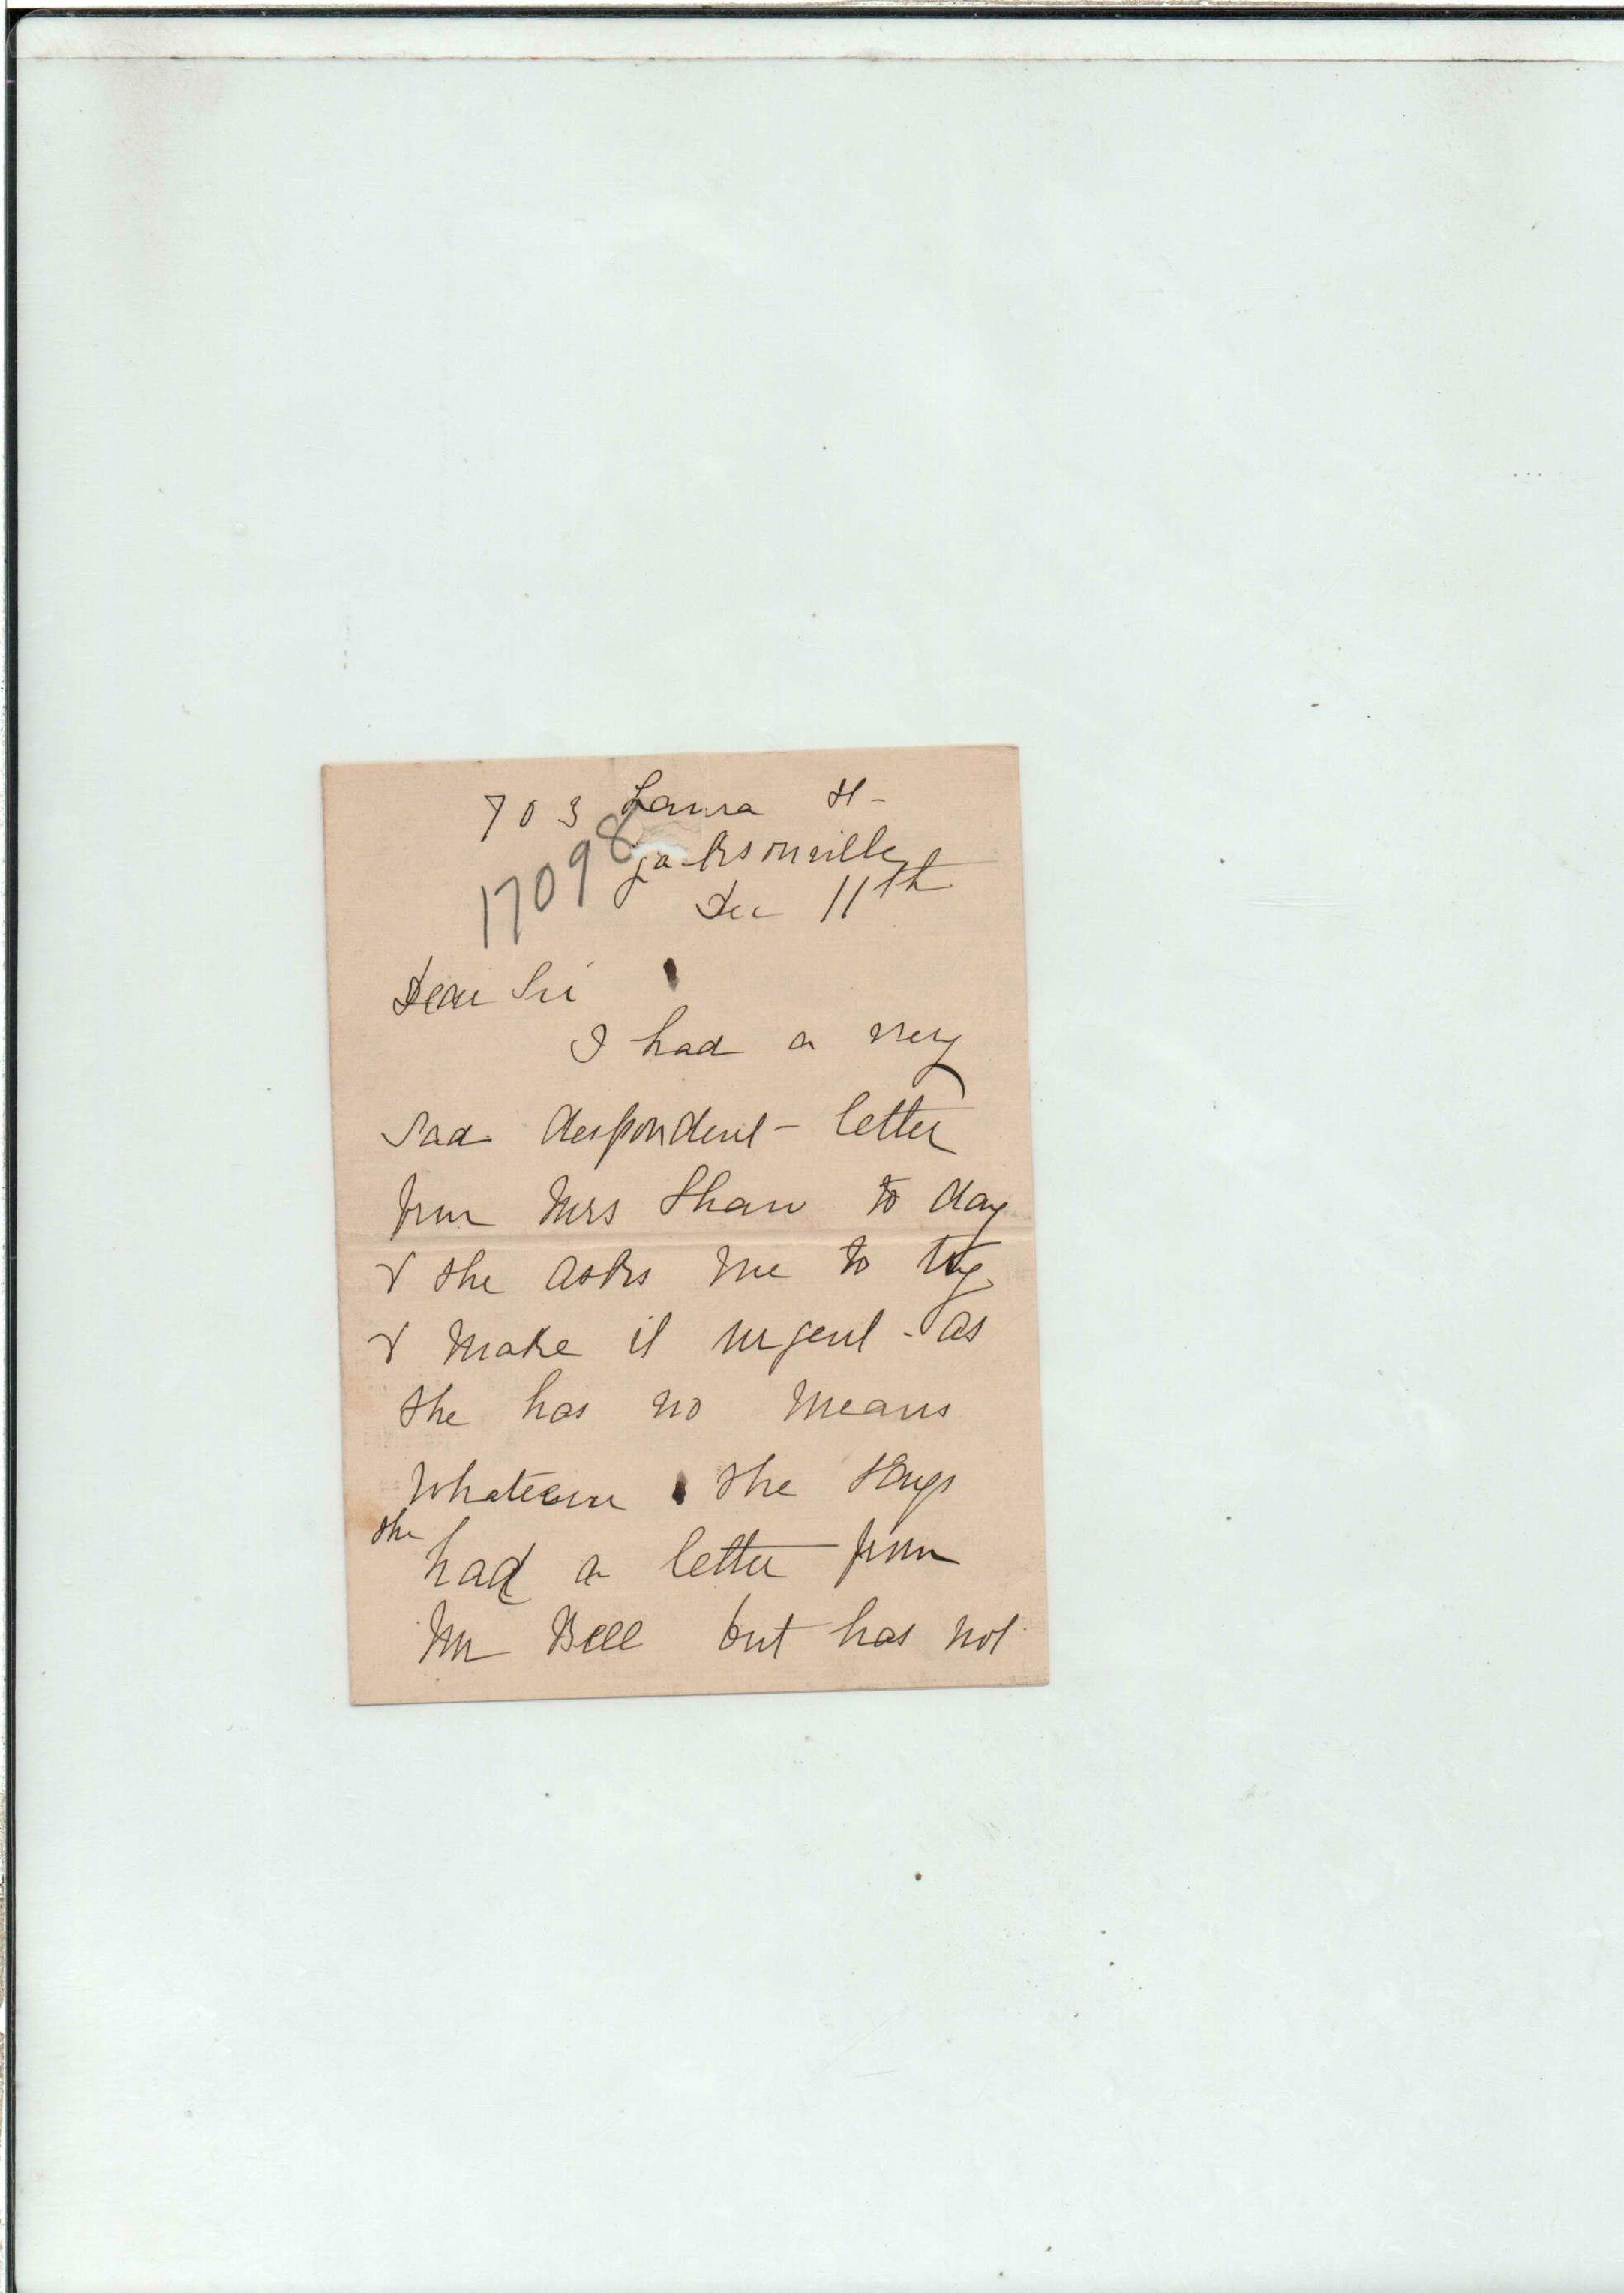 703 Laura St-
17098
Jacksonville
Dec 11th
Dear Sir
I had a very
sad despondent - letter
from Mrs Shaw to day
& she asks me to try
& make it urgent - as
she has no means
whatever she says
she
had a letter from
Mr Bell but has not